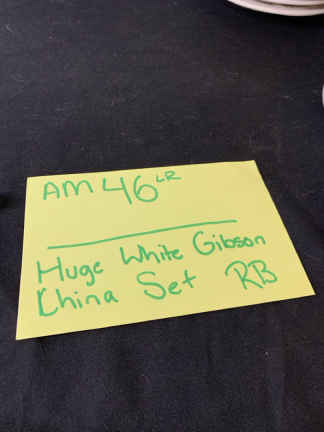 AM 46 LR
Huge White Gibson
China Set RB